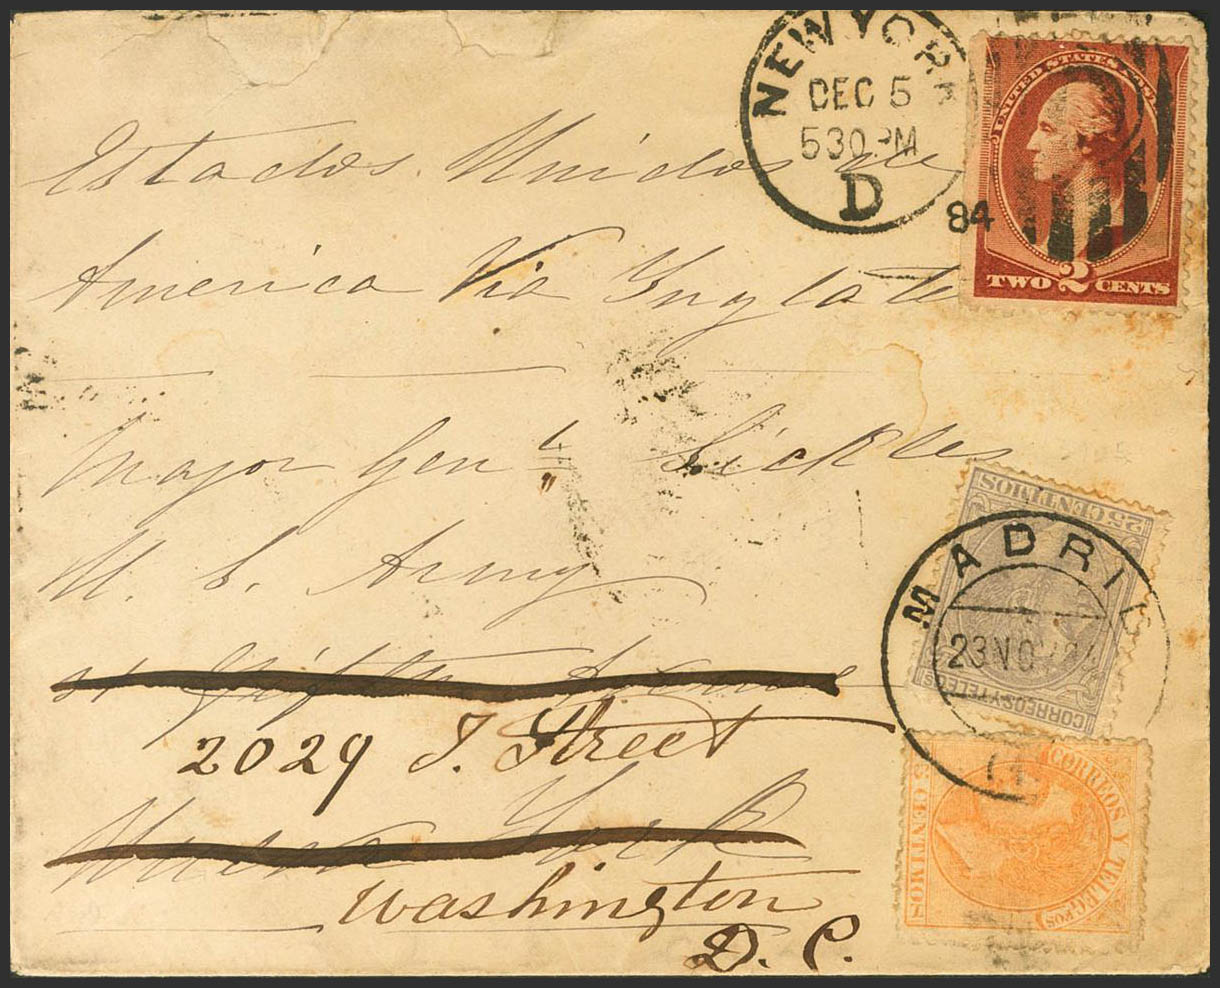 NEW YORK
DEC 5
530 PM
D
84
UNITED STATES
TWO 2 CENTS
Estados Unidos de
America Via Ynglate
Major Genl Sickles
U. S. Army
25 CENTIMOS
CORREOS Y TELEGS
MADRID
23 NOV 84
Fifth Avenue
2029 I. Street
Nueva York
Washington
D. C.
CORREOS Y TELEGFOS
CENTIMOS